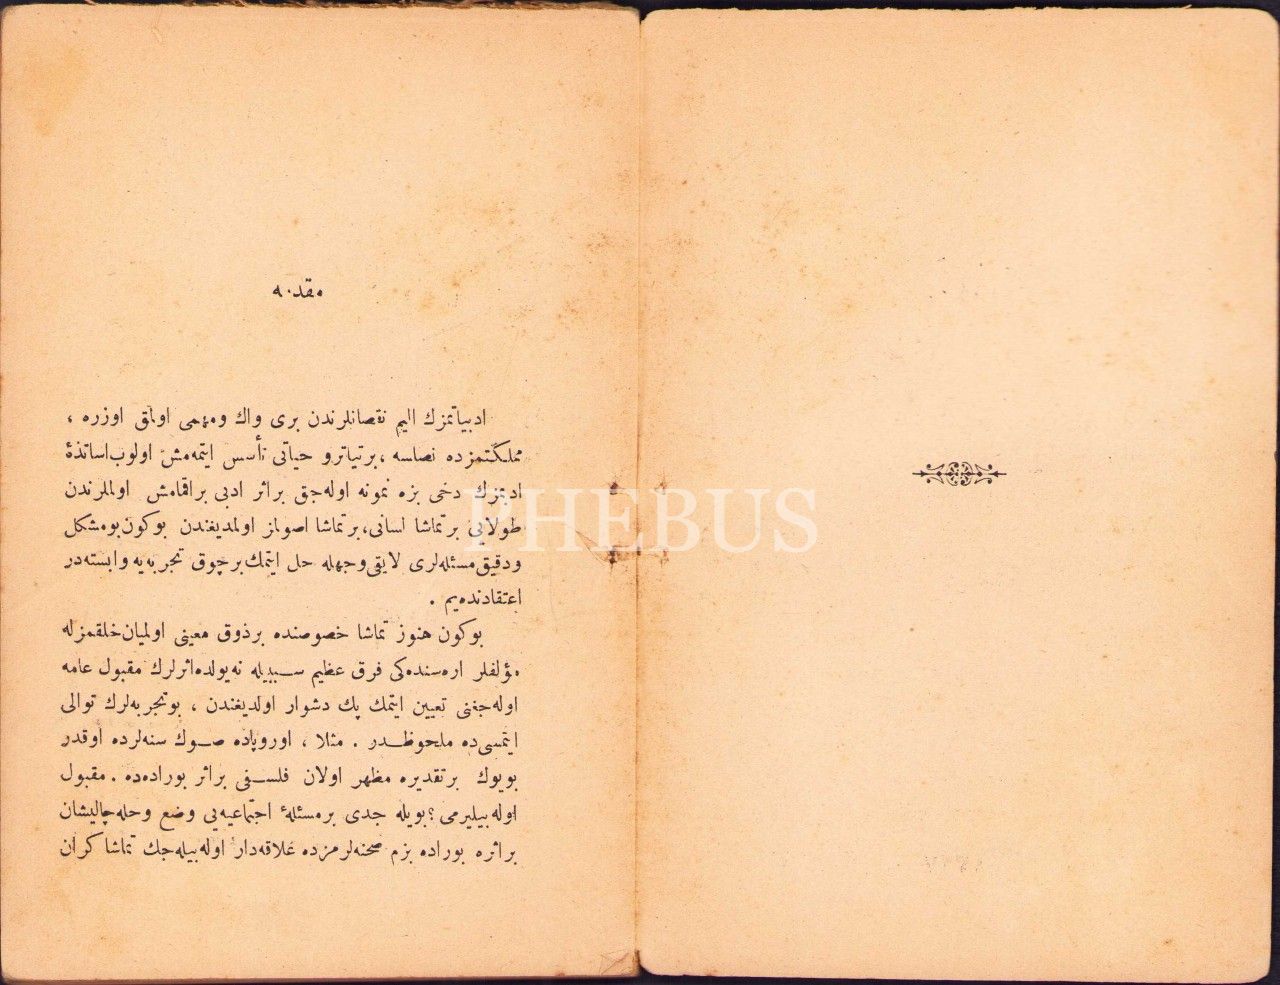 مقدمه
ادبياتمزك اليم نقصانلرندن برى واك ومهمى اولمق اوزره ،
مملكتمزده نصلسه ، برتياترو حياتى تأسس ايتمه‌مش اولوب اساتذۀ
ادبمزك دخى بزه نمونه اوله‌جق براثر ادبى براقمامش اولملرندن
طولايى برتماشا لسانى، برتماشا اصولمز اولمديغندن بوكون بومشكل
ودقيق مسئله‌لرى لايقى وجهله حل ايتمك برچوق تجربه‌يه وابسته‌در
اعتقادنده‌يم .
بوكون هنوز تماشا خصوصنده برذوق معينى اولميان خلقمزله
مؤلفلر اره‌سنده‌كى فرق عظيم سببيله نه‌يولده اثرلرك مقبول عامه
اوله‌جغنى تعيين ايتمك پك دشوار اولديغندن ، بوتجربه‌لرك توالى
ايتمسى‌ده ملحوظدر . مثلا ، اوروپاده صوك سنه‌لرده اوقدر
بويوك برتقديره مظهر اولان فلسفى براثر بوراده‌ده . مقبول
اوله‌بيليرمى ؟ بويله جدى برمسئلۀ اجتماعيه‌يى وضع وحله چاليشان
براثره بوراده بزم صحنه‌لرمزده علاقه‌دار اوله‌بيله‌جك تماشاكران
PHEBUS